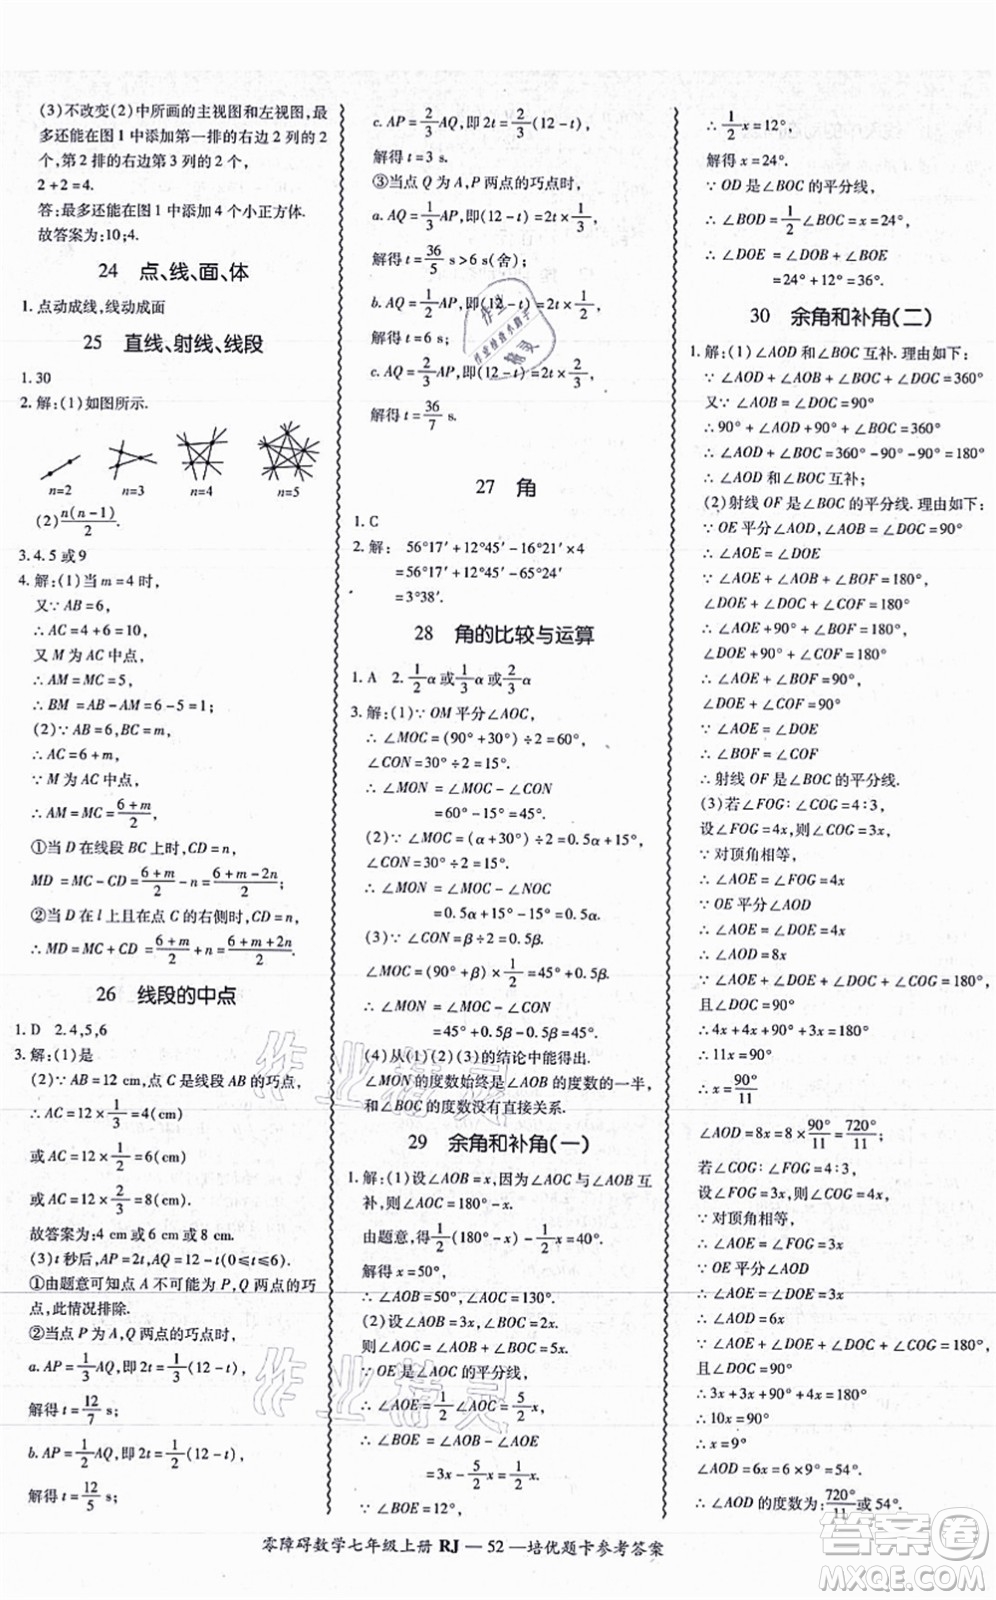 (3)不改变(2)中所画的主视图和左视图,最
多还能在图1中添加第一排的右边2列的2
个,第2排的右边第3列的2个,
2+2=4.
答:最多还能在图1中添加4个小正方体.
故答案为:10;4.
24 点、线、面、体
1.点动成线,线动成面
25 直线、射线、线段
1.30
2.解:(1)如图所示.
n=2 n=3 n=4 n=5
(2)n(n-1)/2.
3.4.5或9
4.解:(1)当m=4时,
又∵AB=6,
∴AC=4+6=10,
又M为AC中点,
∴AM=MC=5,
∴BM=AB-AM=6-5=1;
(2)∵AB=6,BC=m,
∴AC=6+m,
∵M为AC中点,
∴AM=MC=(6+m)/2,
①当D在线段BC上时,CD=n,
MD=MC-CD=(6+m)/2-n=(6+m-2n)/2;
②当D在l上且在点C的右侧时,CD=n,
∴MD=MC+CD=(6+m)/2+n=(6+m+2n)/2.
26 线段的中点
1.D 2.4,5,6
3.解:(1)是
(2)∵AB=12 cm,点C是线段AB的巧点,
∴AC=12×1/3=4(cm)
或AC=12×1/2=6(cm)
或AC=12×2/3=8(cm).
故答案为:4 cm或6 cm或8 cm.
(3)t秒后,AP=2t,AQ=12-t(0≤t≤6)
①由题意可知点A不可能为P,Q两点的巧
点,此情况排除.
②当点P为A,Q两点的巧点时,
a.AP=1/3AQ,即2t=1/3(12-t),
解得t=12/7 s;
b.AP=1/2AQ,即2t=1/2(12-t),
解得t=12/5 s;
c.AP=2/3AQ,即2t=2/3(12-t),
解得t=3 s.
③当点Q为A,P两点的巧点时,
a.AQ=1/3AP,即(12-t)=2t×1/3,
解得t=36/5 s>6 s(舍);
b.AQ=1/2AP,即(12-t)=2t×1/2,
解得t=6 s;
c.AQ=2/3AP,即(12-t)=2t×2/3,
解得t=36/7 s.
27 角
1.C
2.解: 56°17′+12°45′-16°21′×4
=56°17′+12°45′-65°24′
=3°38′.
28 角的比较与运算
1.A 2.1/2α或1/3α或2/3α
3.解:(1)∵OM平分∠AOC,
∴∠MOC=(90°+30°)÷2=60°.
∠CON=30°÷2=15°.
∴∠MON=∠MOC-∠CON
=60°-15°=45°.
(2)∵∠MOC=(α+30°)÷2=0.5α+15°.
∠CON=30°÷2=15°,
∴∠MON=∠MOC-∠CON
=0.5α+15°-15°=0.5α.
(3)∵∠CON=0.5β,
∠MOC=(90°+β)×1/2=45°+0.5β,
∴∠MON=∠MOC-∠CON
=45°+0.5β-0.5β=45°.
(4)从(1)(2)(3)的结论中能得出.
∠MON的度数始终是∠AOB的度数的一半,
和∠BOC的度数没有直接关系.
29 余角和补角(一)
1.解:(1)设∠AOB=x,因为∠AOC与∠AOB互
补,则∠AOC=180°-x.
由题意,得1/2(180°-x)-1/2x=40°.
解得x=50°,
∴∠AOB=50°,∠AOC=130°.
(2)设∠AOB=x,∠COD=∠AOD=4∠AOB=4x,
则∠AOC=5x.
∵OE是∠AOC的平分线,
∴∠AOE=1/2∠AOC=5/2x.
∴∠BOE=∠AOE-∠AOB
=3x-5/2x=1/2x.
∵∠BOE=12°,
∴1/2x=12°,
解得x=24°.
∵OD是∠BOC的平分线,
∴∠BOD=1/2∠BOC=x=24°,
∴∠DOE=∠DOB+∠BOE
=24°+12°=36°.
30 余角和补角(二)
1.解:(1)∠AOD和∠BOC互补.理由如下:
∵∠AOD+∠AOB+∠BOC+∠DOC=360°
又∵∠AOB=∠DOC=90°
∴90°+∠AOD+90°+∠BOC=360°
∴∠AOD+∠BOC=360°-90°-90°=180°
∴∠AOD和∠BOC互补.
(2)射线OF是∠BOC的平分线.理由如下:
∵OE平分∠AOD,∠AOB=∠DOC=90°
∴∠AOE=∠DOE
∴∠AOE+∠AOB+∠BOF=180°,
∠DOE+∠DOC+∠COF=180°
∴∠AOE+90°+∠BOF=180°,
∠DOE+90°+∠COF=180°
∴∠AOE+∠BOF=90°,
∠DOE+∠COF=90°
∴∠BOF=∠COF
∴射线OF是∠BOC的平分线.
(3)若∠FOG∶∠COG=4∶3,
设∠FOG=4x,则∠COG=3x,
∵对顶角相等,
∴∠AOE=∠FOG=4x
∵OE平分∠AOD
∴∠AOE=∠DOE=4x
∴∠AOD=8x
∵∠AOE+∠DOE+∠DOC+∠COG=180°,
且∠DOC=90°
∴4x+4x+90°+3x=180°
∴11x=90°
∴x=90°/11
∠AOD=8x=8×90°/11=720°/11;
若∠COG∶∠FOG=4∶3,
设∠FOG=3x,则∠COG=4x,
∵对顶角相等,
∴∠AOE=∠FOG=3x
∵OE平分∠AOD
∴∠AOE=∠DOE=3x
∴∠AOD=6x
∵∠AOE+∠DOE+∠DOC+∠COG=180°,
且∠DOC=90°
∴3x+3x+90°+4x=180°
∴10x=90°
∴x=9°
∠AOD=6x=6×9°=54°.
∴∠AOD的度数为:720°/11或54°.
零障碍数学七年级上册 RJ — 52 —培优题卡参考答案
作业精灵
作业精灵
作业检查小助手
精灵
作业
答案圈
MXQE.COM